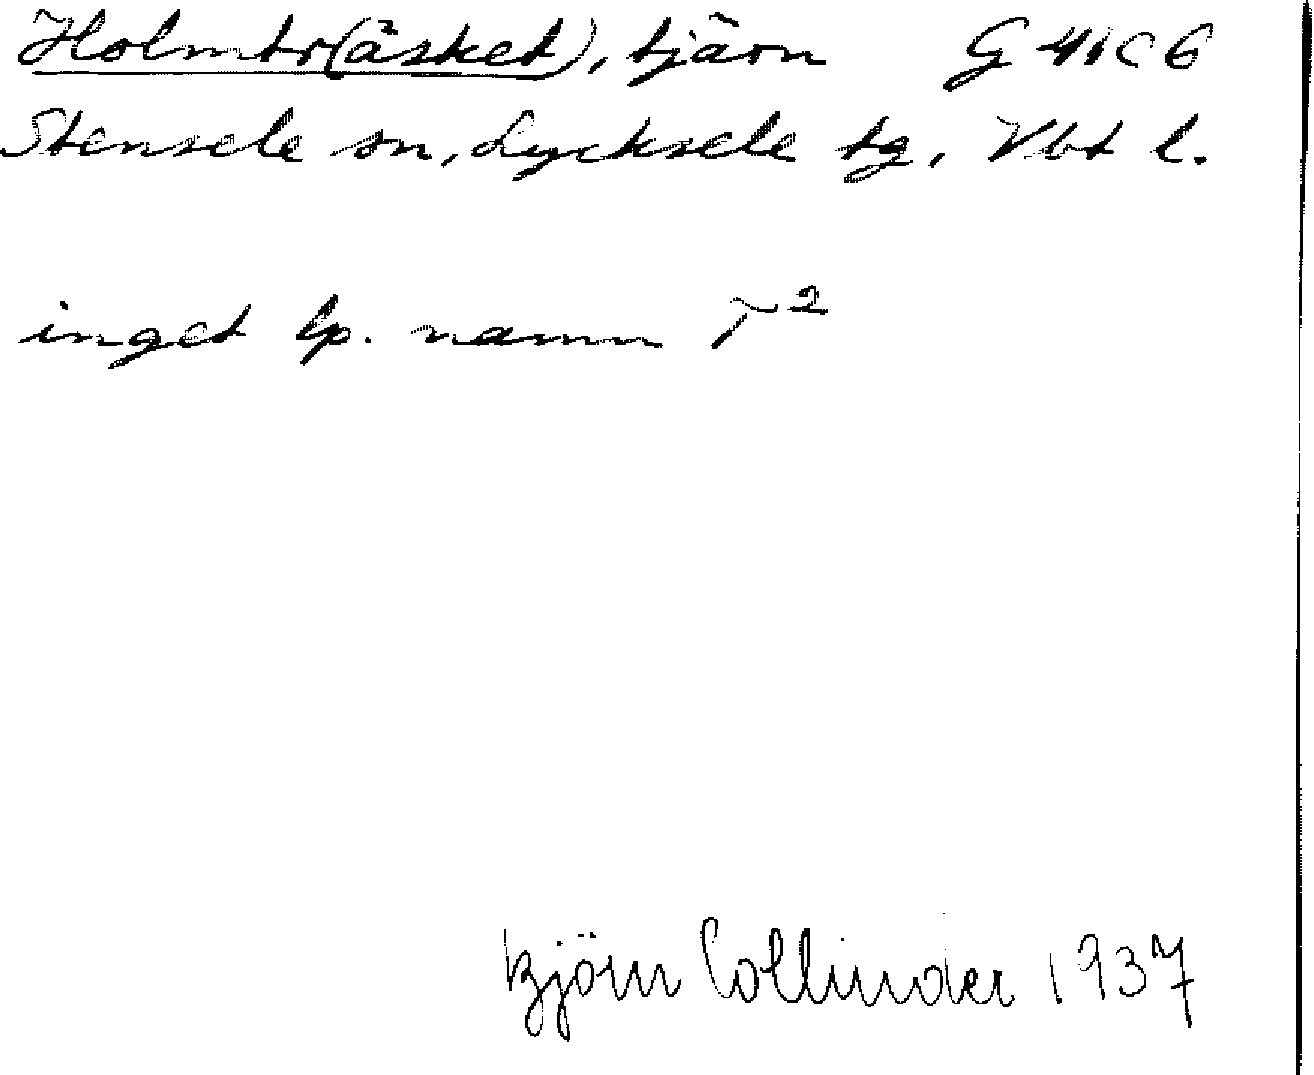 Holmtr(äsket), tjärn G 41 C 6
Stensele sn, Lycksele tg, Vbt l.
inget lp. namn T²
Björn Collinder 1937